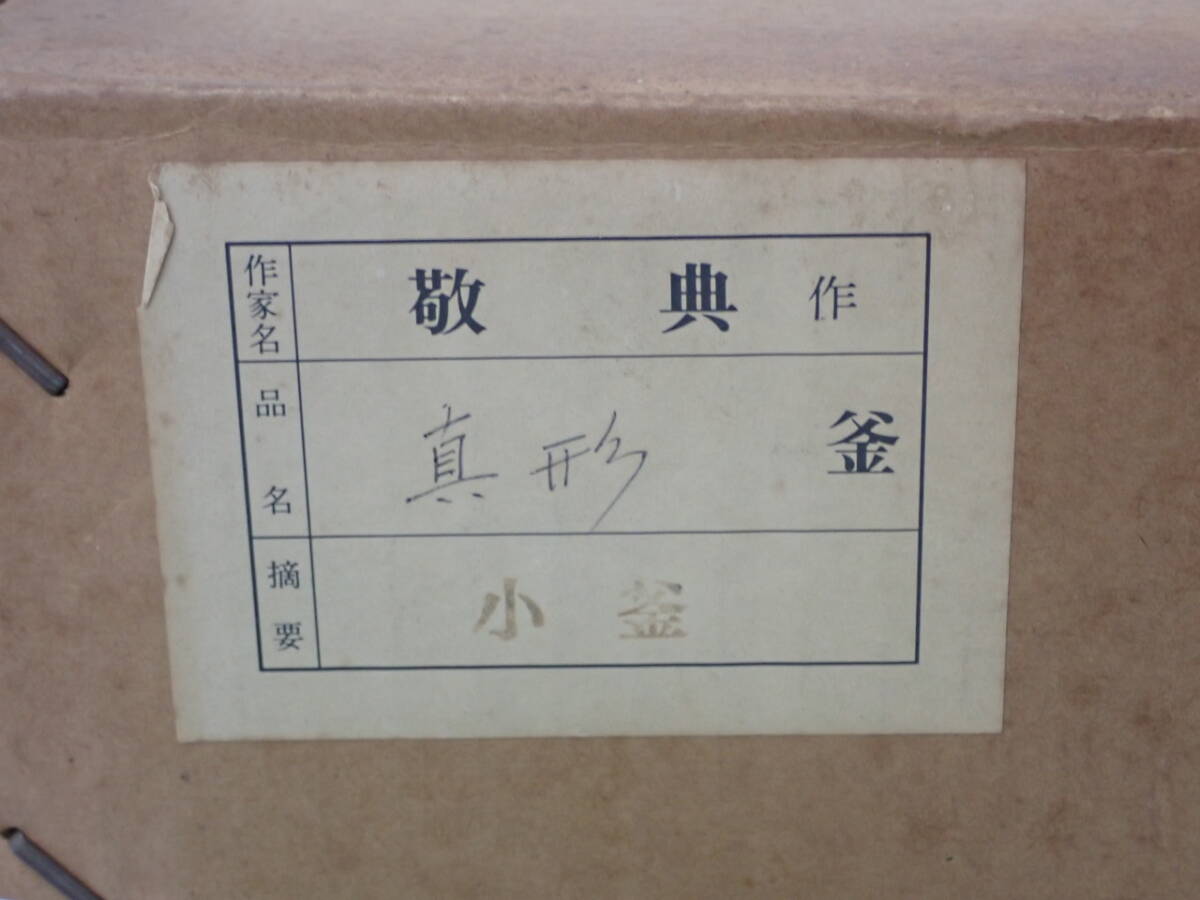 作家名 敬典 作
品名 真形 釜
摘要 小釜